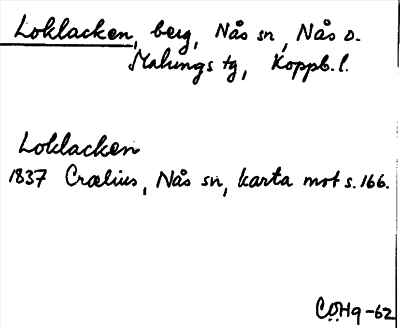 Loklacken, berg, Nås sn, Nås o.
Malungs tg, Koppb. l.
Loklacken
1837 Crælius, Nås sn, karta mot s. 166.
COHq-62